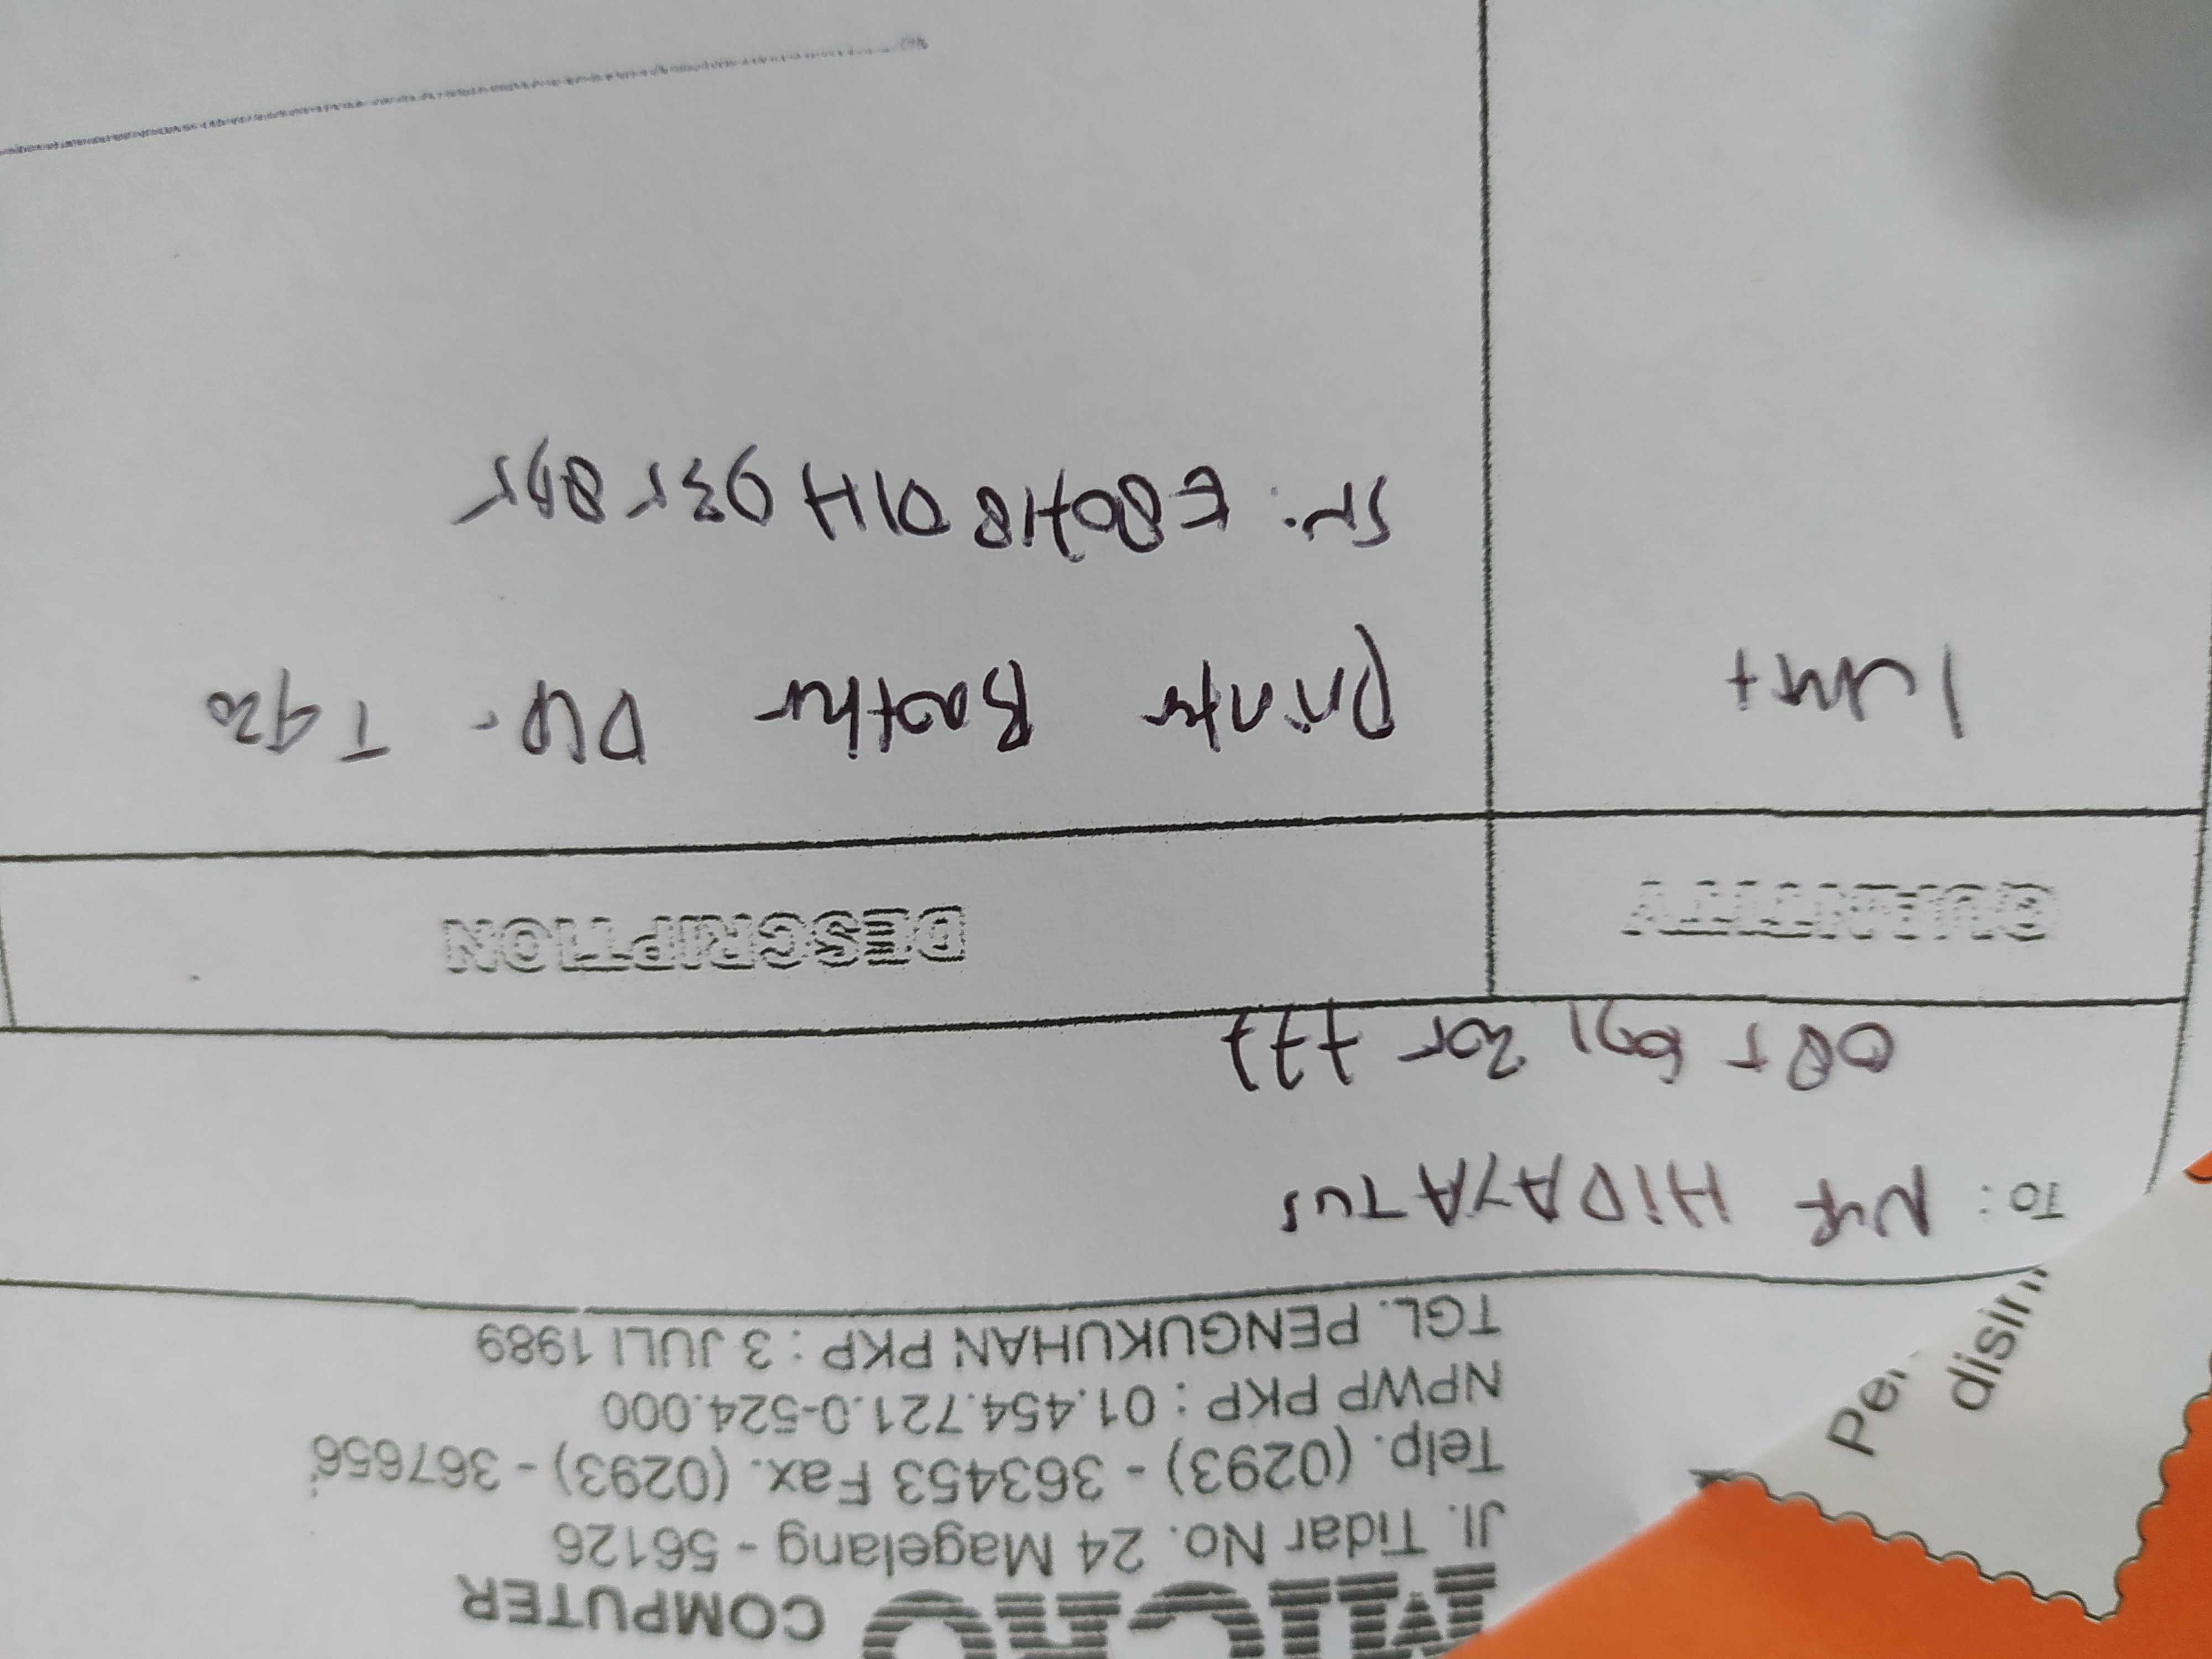 MICRO COMPUTER
Jl. Tidar No. 24 Magelang - 56126
Telp. (0293) - 363453 Fax. (0293) - 367656
NPWP PKP : 01.454.721.0-524.000
TGL. PENGUKUHAN PKP : 3 JULI 1989
TO : NUR HIDAYATUS
085 691 205 777
QUANTITY DESCRIPTION
1 unit Printer Brother DCP- T 920
SN: E80718 D1H 935 895